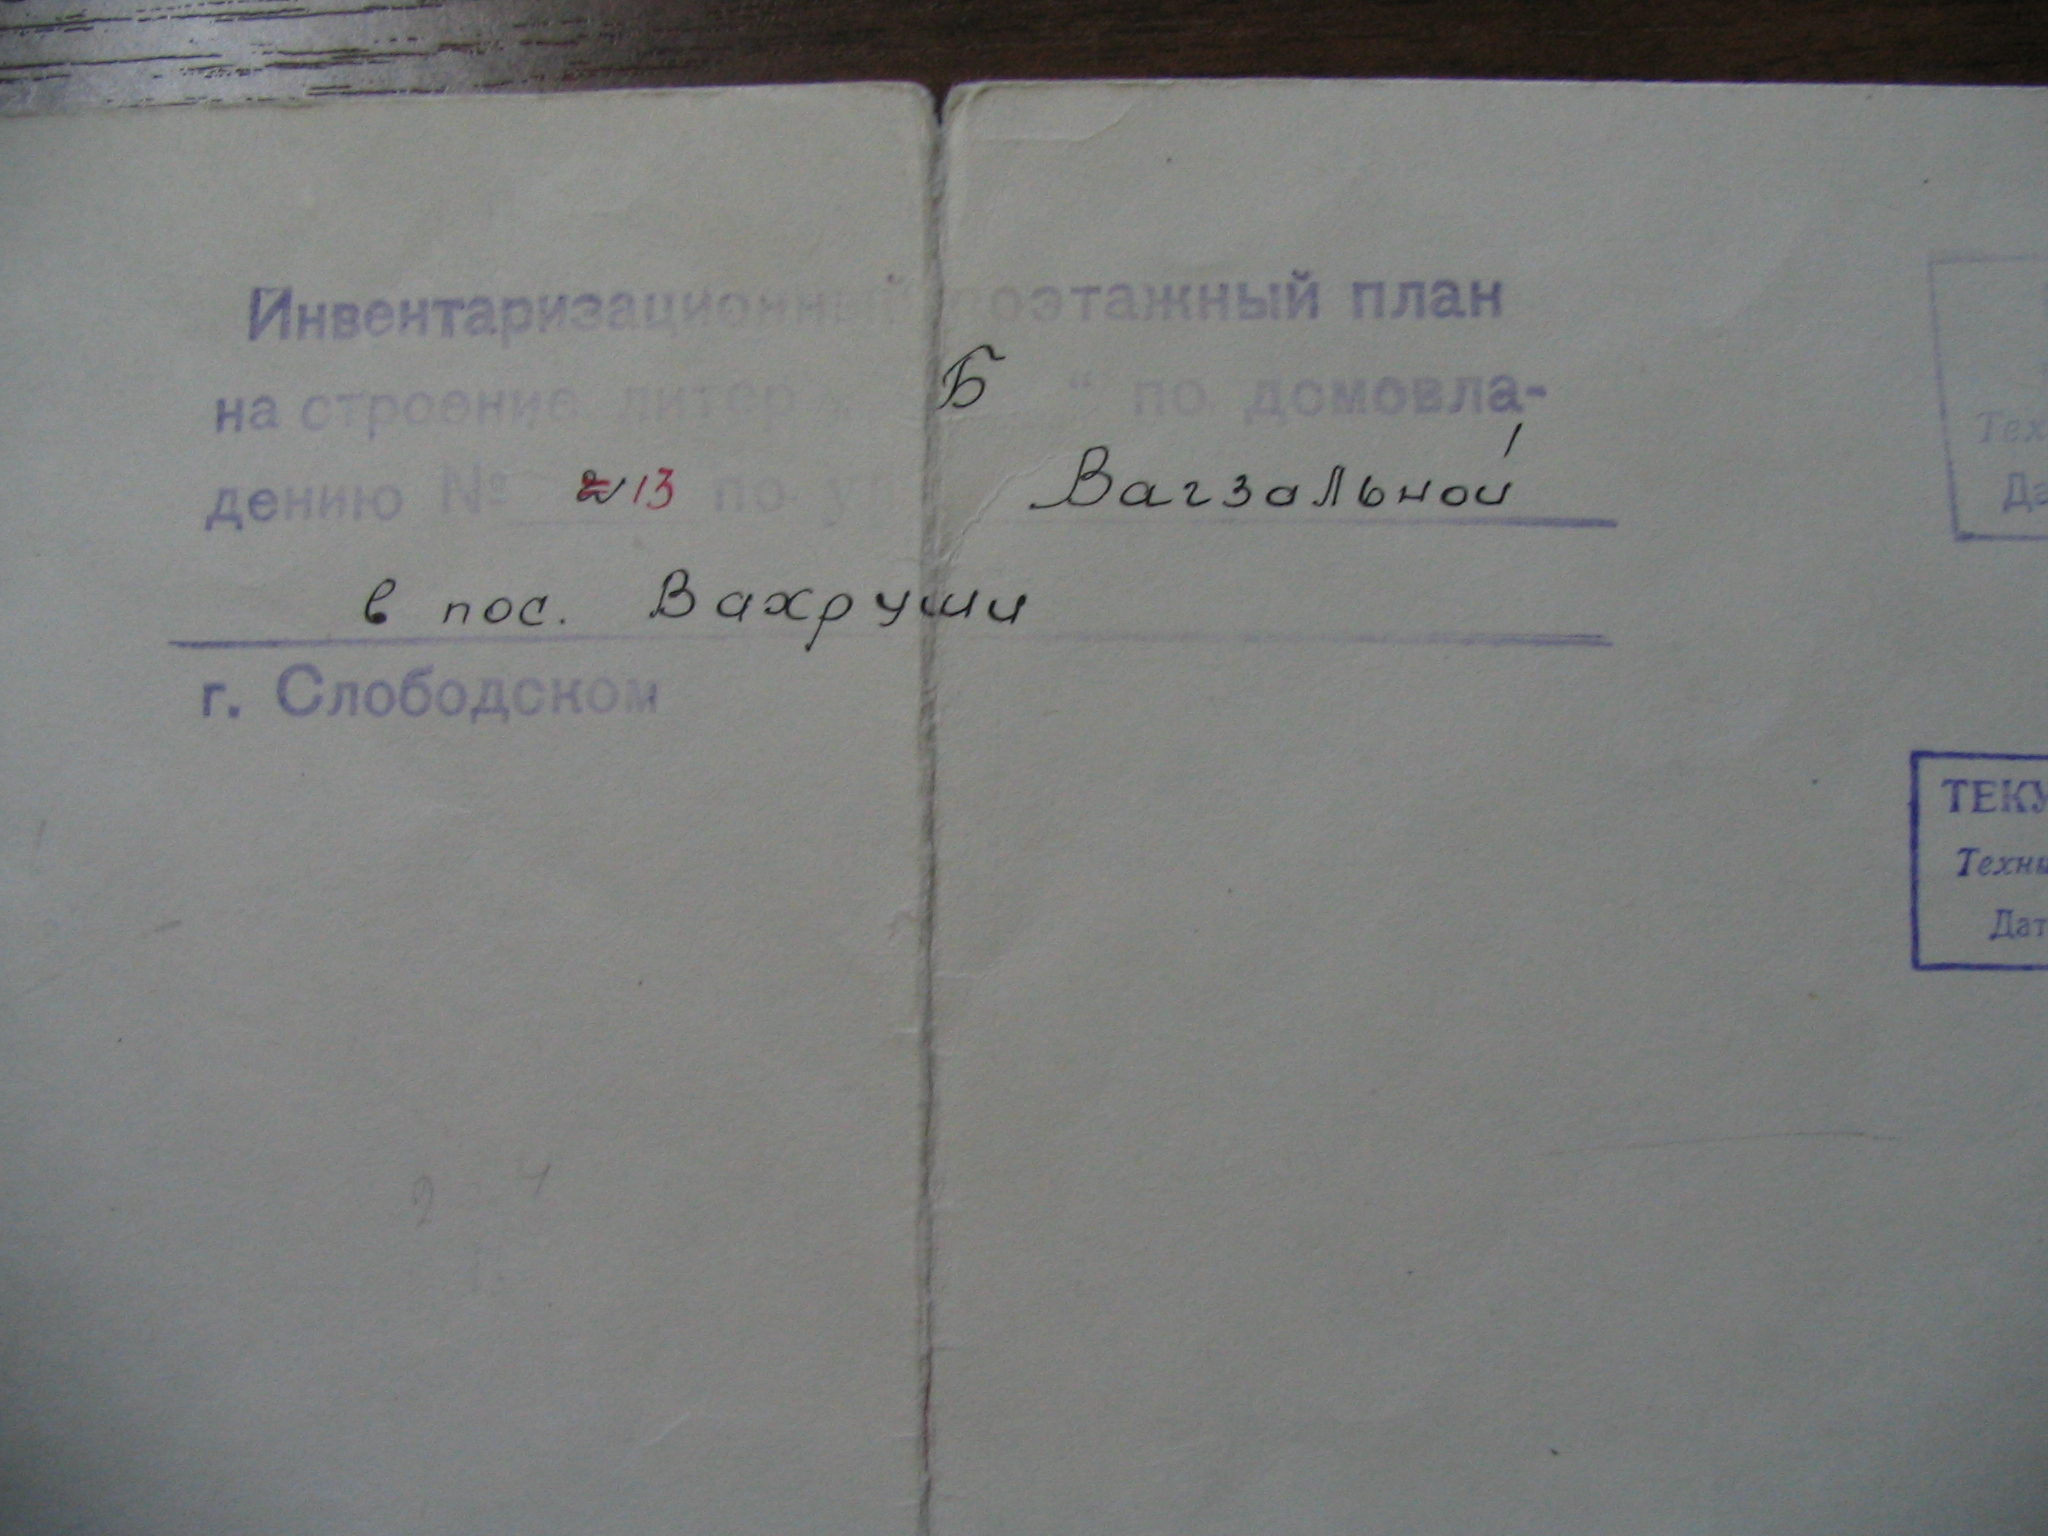 Инвентаризационный поэтажный план
на строение литер „ Б “ по домовла-
дению № 13 по ул Вагзальной
в пос. Вахруши
г. Слободском
Тех
Да
ТЕКУ
Техни
Дат